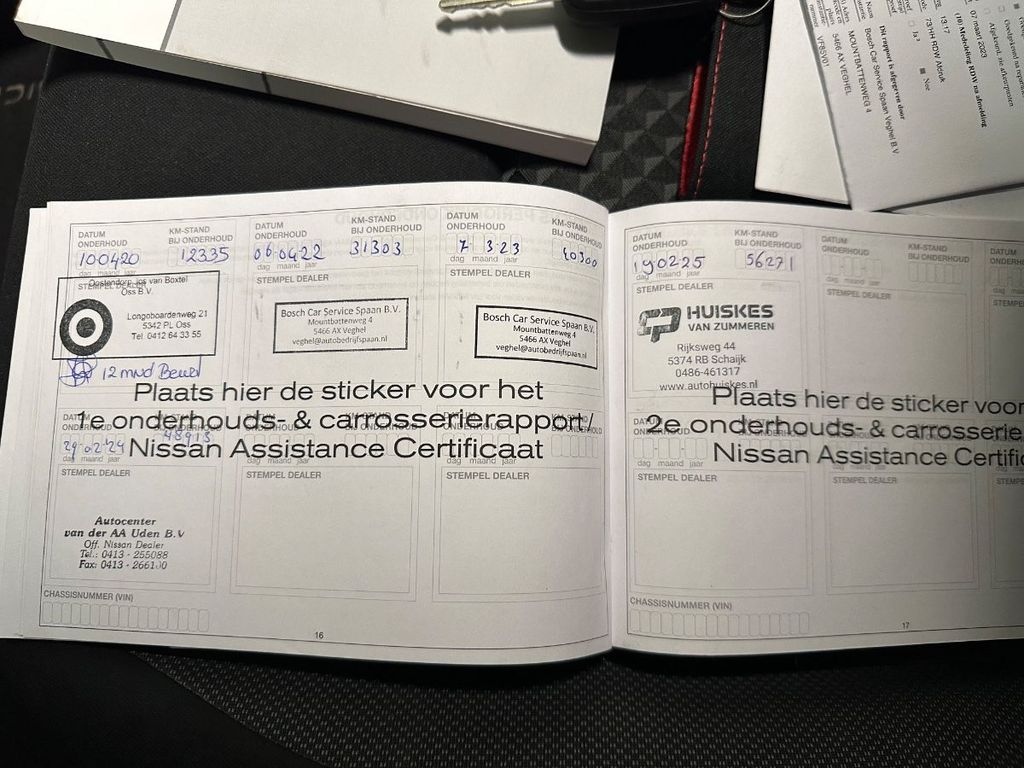 DATUM ONDERHOUD
KM-STAND BIJ ONDERHOUD
100420
12335
dag maand jaar
STEMPEL DEALER
Oostendorp Jos van Boxtel
Oss B.V.
Longobardenweg 21
5342 PL Oss
Tel 0412 64 33 55
12 mnd Beurt
DATUM ONDERHOUD
KM-STAND BIJ ONDERHOUD
060422
31303
dag maand jaar
STEMPEL DEALER
Bosch Car Service Spaan B.V.
Mountbattenweg 4
5466 AX Veghel
veghel@autobedrijfspaan.nl
DATUM ONDERHOUD
KM-STAND BIJ ONDERHOUD
7 3 23
40300
dag maand jaar
STEMPEL DEALER
Bosch Car Service Spaan B.V.
Mountbattenweg 4
5466 AX Veghel
veghel@autobedrijfspaan.nl
Plaats hier de sticker voor het
1e onderhouds- & carrosserierapport/
Nissan Assistance Certificaat
DATUM ONDERHOUD
29-02-24
48913
dag maand jaar
STEMPEL DEALER
Autocenter
van der AA Uden B.V
Off. Nissan Dealer
Tel.: 0413 - 255088
Fax: 0413 - 266100
dag maand jaar
STEMPEL DEALER
dag maand jaar
STEMPEL DEALER
CHASSISNUMMER (VIN)
16
DATUM ONDERHOUD
KM-STAND BIJ ONDERHOUD
190225
56271
dag maand jaar
STEMPEL DEALER
HUISKES
VAN ZUMMEREN
Rijksweg 44
5374 RB Schaijk
0486-461317
www.autohuiskes.nl
DATUM ONDERHOUD
KM-STAND BIJ ONDERHOUD
STEMPEL DEALER
Plaats hier de sticker voor
2e onderhouds- & carrosserie
Nissan Assistance Certifi
dag maand jaar
STEMPEL DEALER
STEMPEL DEALER
CHASSISNUMMER (VIN)
17
07 maart 2023
(10) Mededeling RDW na afmelding
13:17
Dit rapport is afgegeven door
Bosch Car Service Spaan Veghel B.V
MOUNTBATTENWEG 4
5466 AX VEGHEL
Ja
Nee
Naam